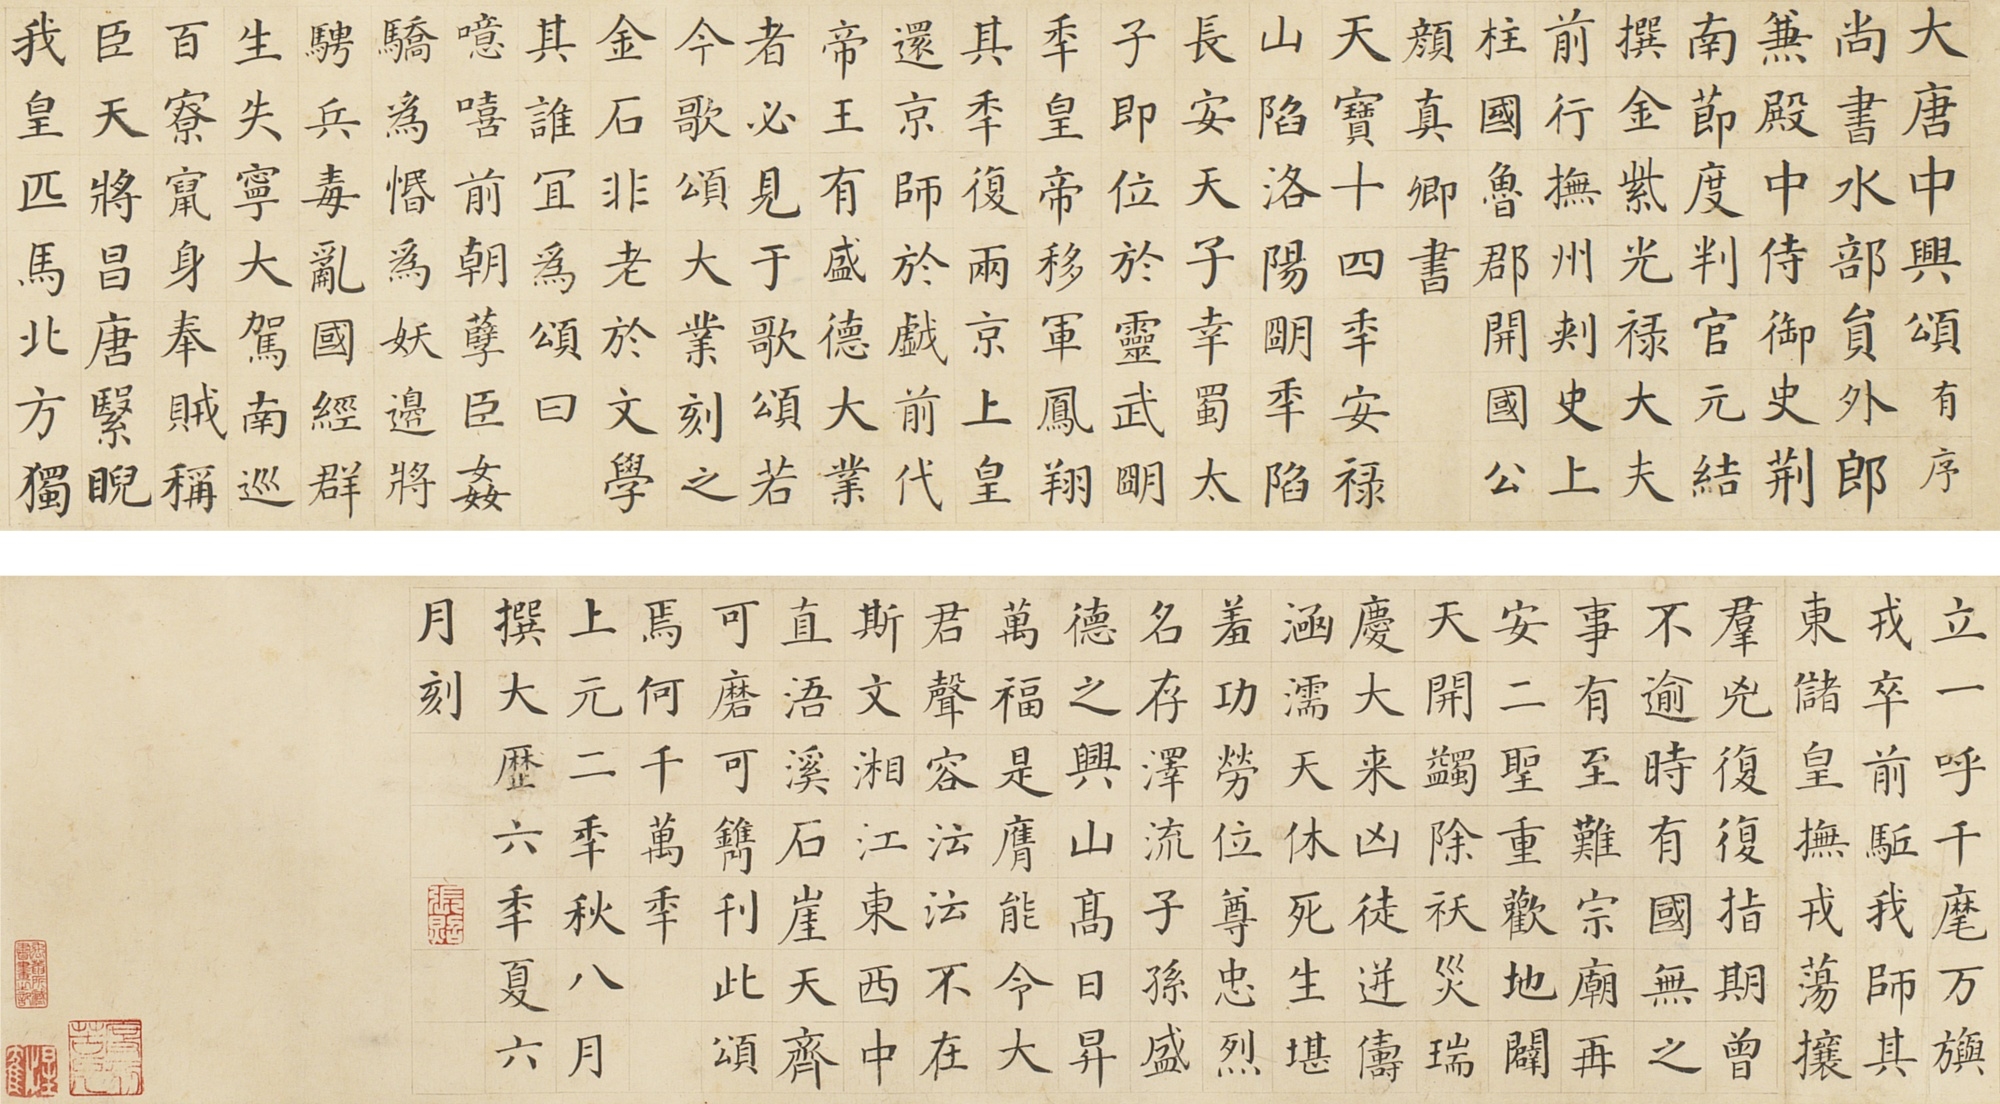 大唐中興頌有序
尚書水部員外郎
兼殿中侍御史荆
南節度判官元結
撰金紫光禄大夫
前行撫州刺史上
柱國魯郡開國公
顔真卿書
天寶十四秊安禄
山陷洛陽明秊陷
長安天子幸蜀太
子即位於靈武明
秊皇帝移軍鳳翔
其秊復兩京上皇
還京師於戲前代
帝王有盛德大業
者必見于歌頌若
今歌頌大業刻之
金石非老於文學
其誰宜爲頌曰
噫嘻前朝孽臣姦
驕為惽爲妖邊將
騁兵毒亂國經群
生失寧大駕南巡
百寮竄身奉賊稱
臣天將昌唐繄睨
我皇匹馬北方獨
立一呼千麾万旟
戎卒前駈我師其
東儲皇撫戎蕩攘
羣兇復復指期曾
不逾時有國無之
事有至難宗廟再
安二聖重歡地闢
天開蠲除祅災瑞
慶大来凶徒迸儔
涵濡天休死生堪
羞功勞位尊忠烈
名存澤流子孫盛
德之興山髙日昇
萬福是膺能令大
君聲容沄沄不在
斯文湘江東西中
直浯溪石崖天齊
可磨可鐫刊此頌
焉何千萬秊
上元二秊秋八月
撰大歷六秊夏六
月刻